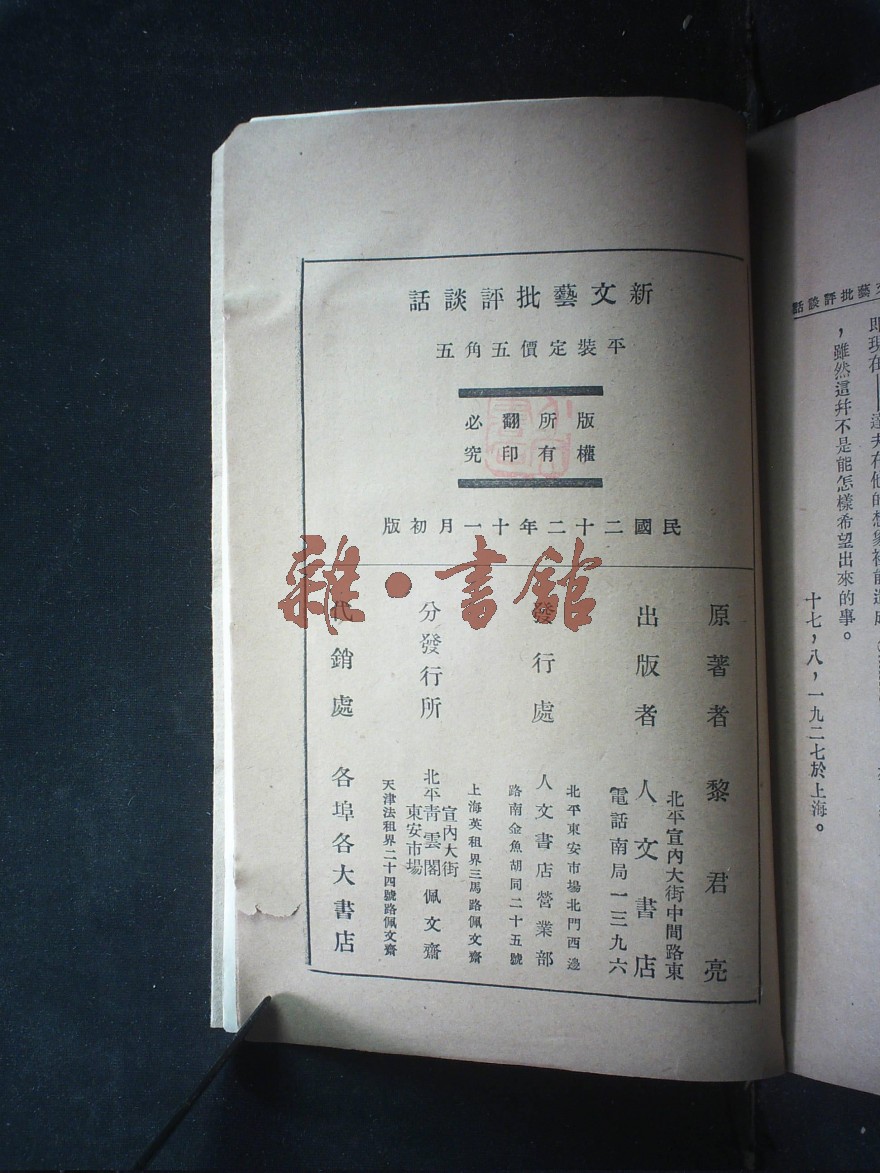 新文藝批評談話
平裝定價五角五
版權
所有
翻印
必究
民國二十二年十一月初版
雜·書館
原著者 黎君亮
北平宣內大街中間路東
出版者 人文書店
電話南局一三九六
北平東安市場北門西邊
發行處 人文書店營業部
路南金魚胡同二十五號
上海英租界三馬路佩文齋
宣內大街
分發行所 北平青雲閣佩文齋
東安市場
天津法租界二十四號路佩文齋
代銷處 各埠各大書店
藝批評談話
即現在
,雖然這幷不是能怎樣希望出來的事。
十七,八,一九二七於上海。